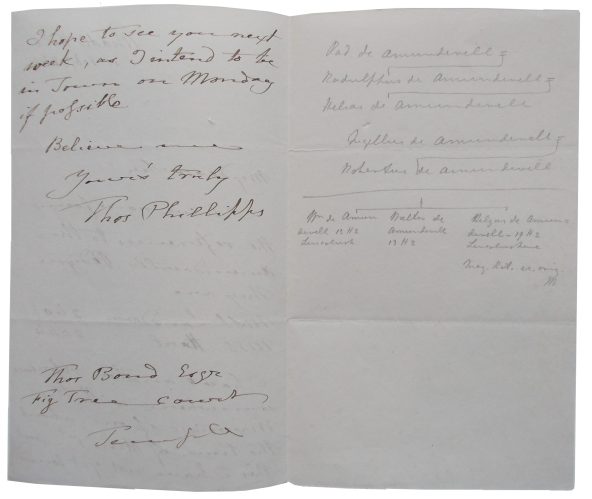 I hope to see you next
week, as I intend to be
in Town on Monday
if possible
Believe me
Yours truly
Thos Phillipps
Thos Bond Esqr
Fig Tree Court
Temple
Rad de Amundevell
Radulphus de Amundevell
Helias de Amundevill
de Amundevell
Robertus de Amundevill
Wm de Amun
devill 12 H2
Lincolnsh
Walter de
Amundevill
13 H2
Helyas de Amun=
devill - 19 H2
Lincolnshire